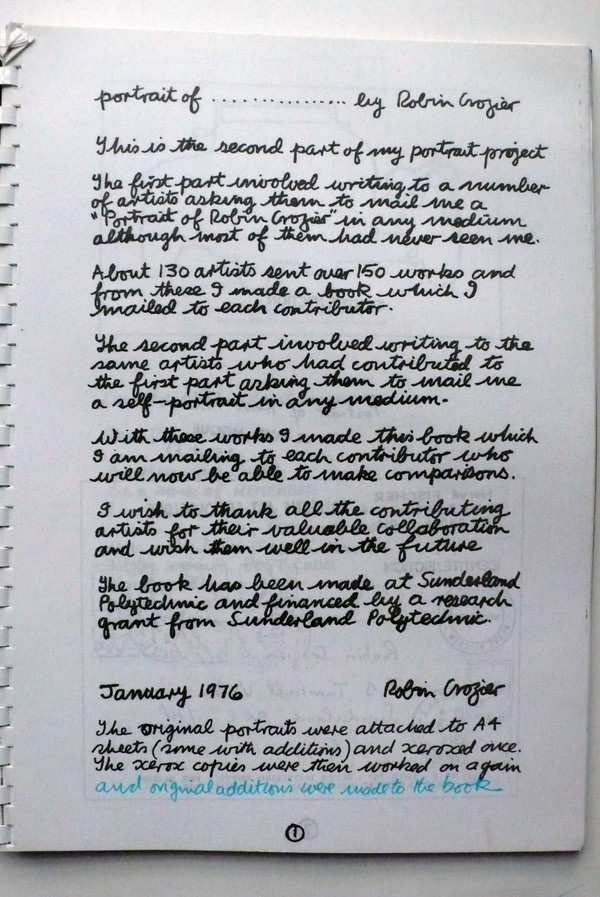 portrait of ............... by Robin Crozier
This is the second part of my portrait project
The first part involved writing to a number
of artists asking them to mail me a
"Portrait of Robin Crozier" in any medium
although most of them had never seen me.
About 130 artists sent over 150 works and
from these I made a book which I
mailed to each contributor.
The second part involved writing to the
same artists who had contributed to
the first part asking them to mail me
a self-portrait in any medium.
With these works I made this book which
I am mailing to each contributor who
will now be able to make comparisons.
I wish to thank all the contributing
artists for their valuable collaboration
and wish them well in the future
The book has been made at Sunderland
Polytechnic and financed by a research
grant from Sunderland Polytechnic.
January 1976 Robin Crozier
The original portraits were attached to A4
sheets (some with additions) and xeroxed once.
The xerox copies were then worked on again
and original additions were made to the book
1